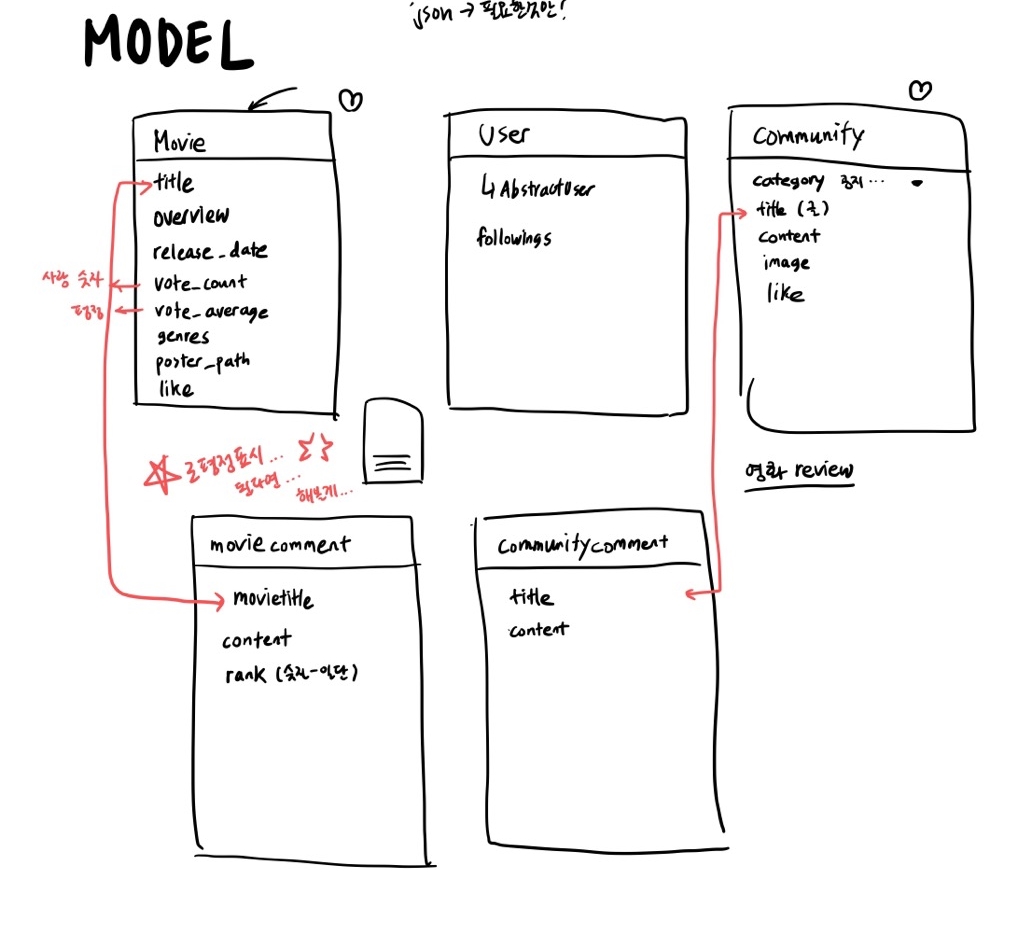 json → 필요한것만!
MODEL
Movie
title
overview
release_date
vote_count
vote_average
genres
poster_path
like
사람 숫자
평점
User
↳ AbstractUser
followings
Community
category 공지...
title (글)
content
image
like
영화 review
로 평점표시...
된다면...
해볼게...
moviecomment
movietitle
content
rank (숫자-일단)
Communitycomment
title
content